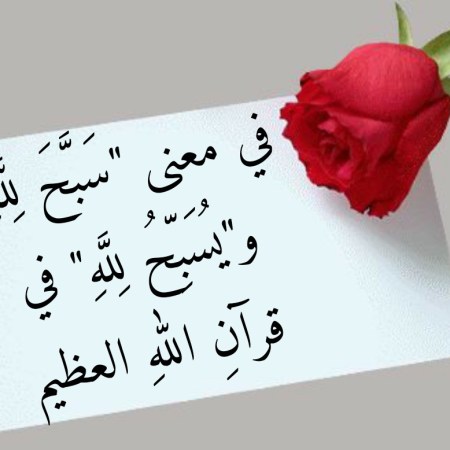 في معنى "سَبَّحَ لِلَّهِ
و"يُسَبِّحُ لِلَّهِ" في
قرآنِ اللهِ العظيم